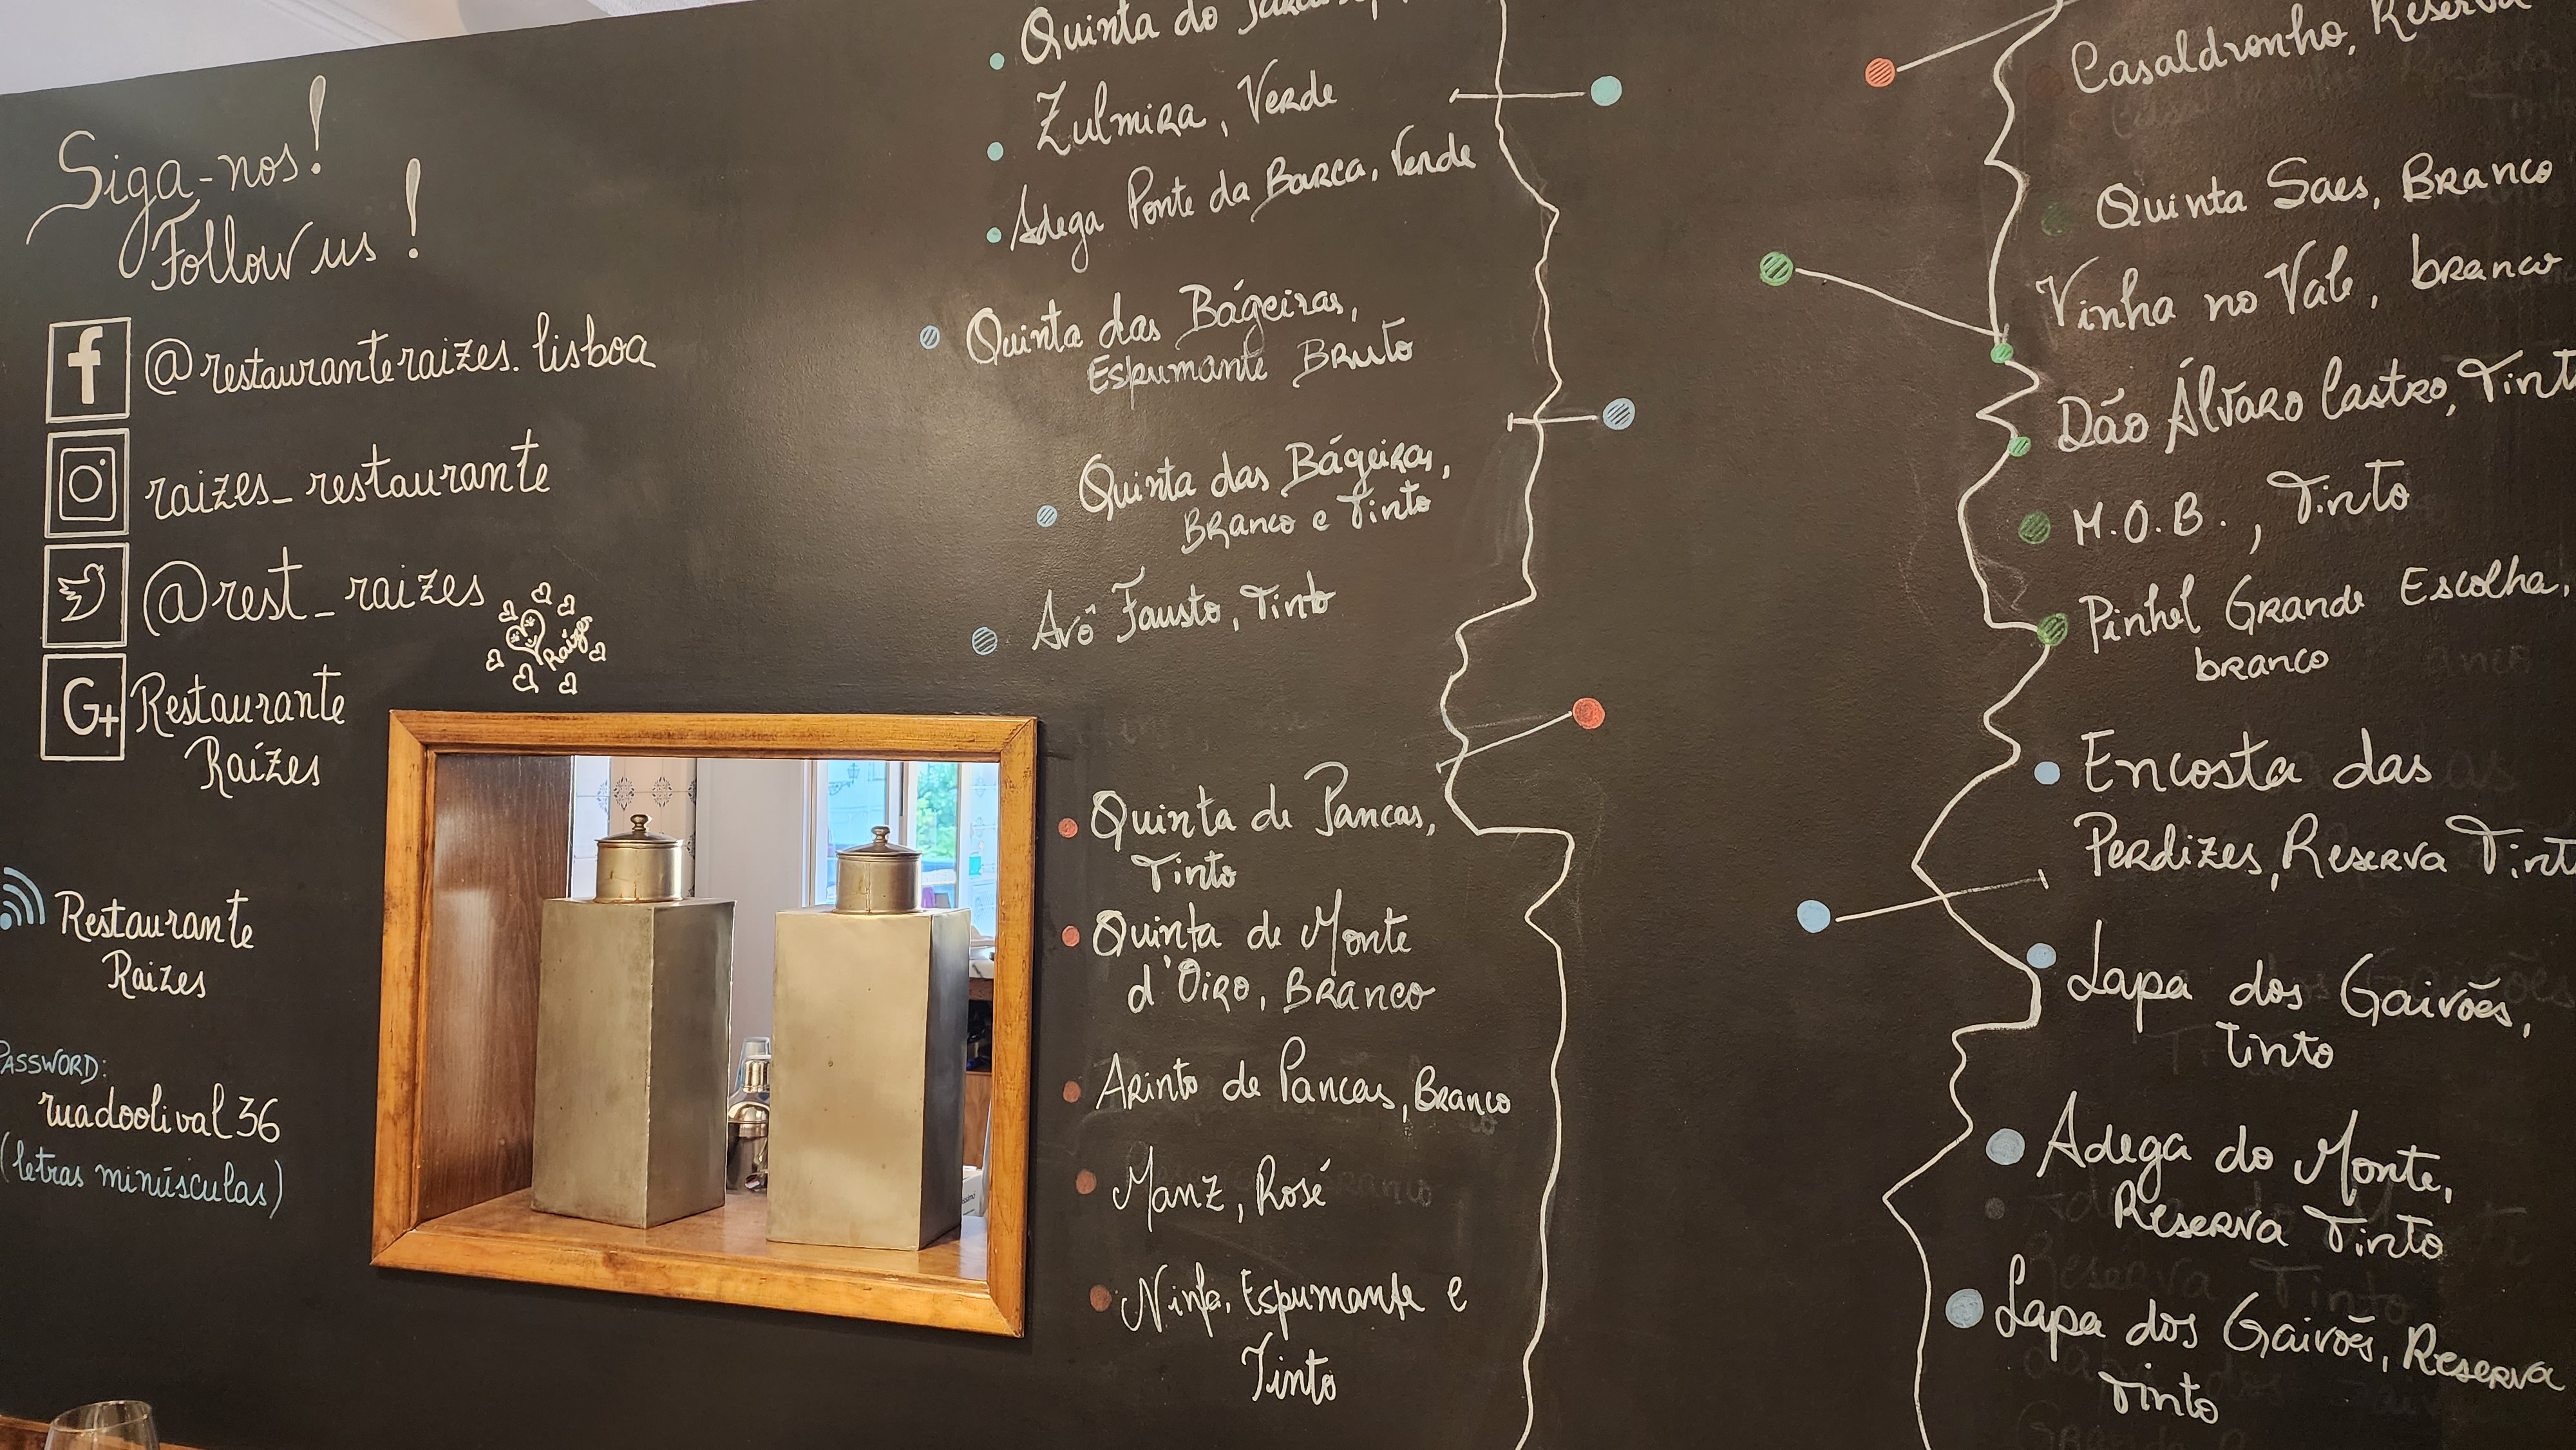 Siga-nos!
Follow us!
f @restauranteraizes.lisboa
raizes_restaurante
@rest_raizes
Raízes
G+ Restaurante
Raízes
Restaurante
Raizes
PASSWORD:
ruadoolival36
(letras minúsculas)
Quinta do
Zulmira, Verde
Adega Ponte da Barca, Verde
Quinta das Bágeiras,
Espumante Bruto
Quinta das Bágeiras,
Branco e Tinto
Avô Fausto, Tinto
Quinta de Pancas,
Tinto
Quinta de Monte
d'Oiro, Branco
Arinto de Pancas, Branco
Manz, Rosé
Ninfa, Espumante e
Tinto
Casaldronho, Reserva
Quinta Saes, Branco
Vinha no Vale, branco
Dão Álvaro Castro, Tint
M.O.B., Tinto
Pinhel Grande Escolha,
branco
Encosta das
Perdizes, Reserva Tint
Lapa dos Gaivões,
Tinto
Adega do Monte,
Reserva Tinto
Lapa dos Gaivões, Reserva
Tinto